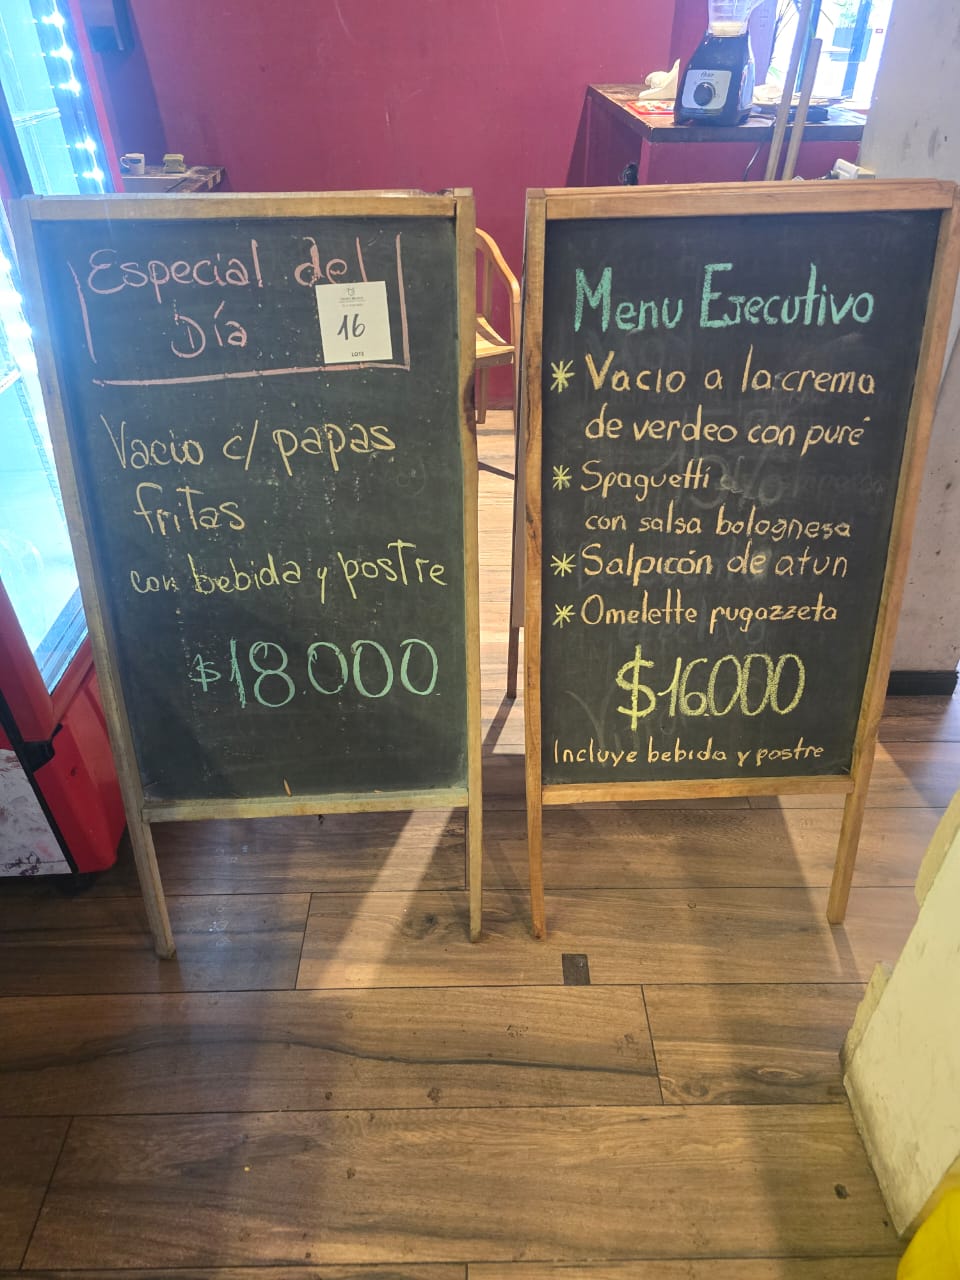 Especial del
Día
16
LOTE
Vacio c/ papas
fritas
con bebida y postre
$18.000
Menu Ejecutivo
* Vacio a la crema
de verdeo con puré
* Spaguetti
con salsa bolognesa
* Salpicón de atun
* Omelette fugazzeta
$16.000
Incluye bebida y postre